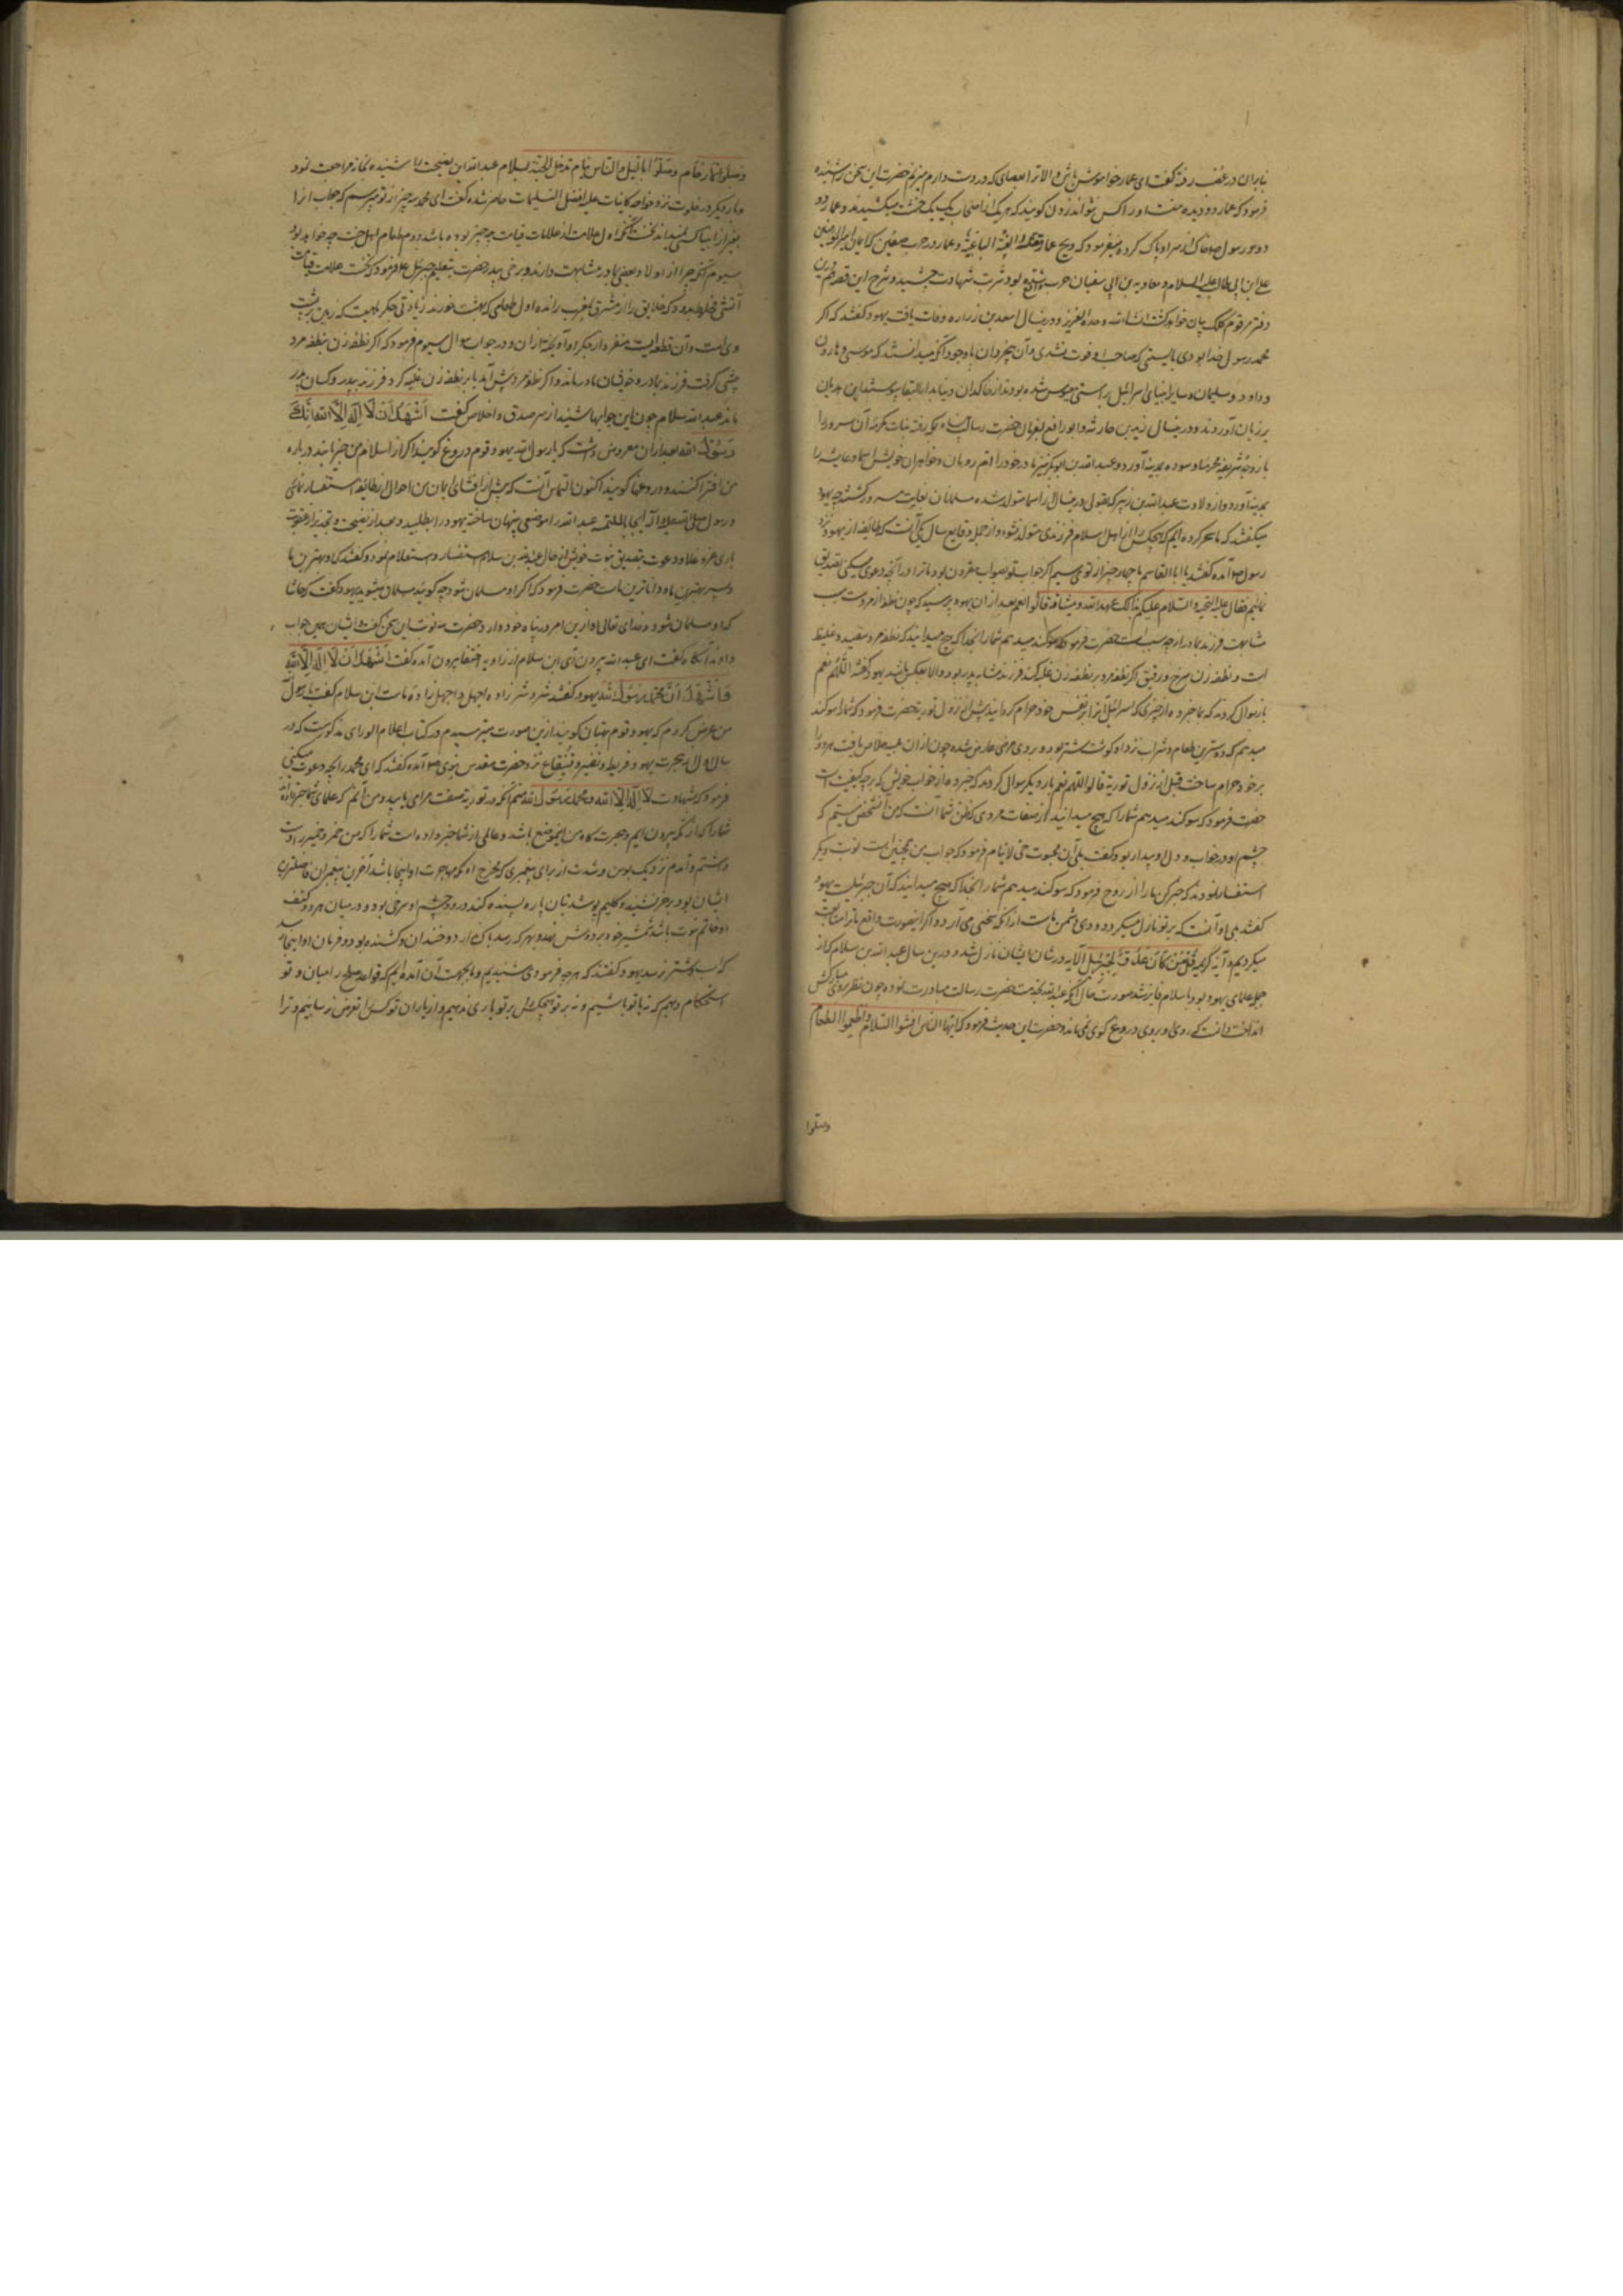 بنابران در غضب رفته گفت ای عمار خواموش باش و الا ترا بعصای که در دست دارم میزنم حضرت این سخن را شنیده
فرمود که عمار دو دیده منست او را کس نتواند زدن گویند که هر یک از اصحاب یک یک خشت میکشیدند و عمار دو
دو و رسول خاک از سر او پاک کرده میفرمود که ویح عمار تقتله الفئة الباغیة و عمار در حرب صفین که میان امیرالمومنین
علی ابن ابی طالب علیه السلام و معاویه بن ابی سفیان حرب بود شربت شهادت چشید و شرح این قصه هم درین
دفتر مرقوم کلک بیان خواهد گشت انشاءالله وحده العزیز و درینسال اسعد بن زراره وفات یافت یهود گفتند که اگر
محمد رسول خدا بودی بایستی که صاحب او فوت نشدی و آن بیخردان باوجود آنکه میدانستند که موسی و هارون
و داود و سلیمان و سایر انبیای اسرائیل براستی مبعوث شده بودند از خاکدان دنیا بدارالبقا پیوستند این هذیان
بر زبان آوردند و درینسال زید بن حارثه و ابو رافع بفرمان حضرت رسالت پناه بمکه رفته بنات مکرمه آن سرور را
با زوجه شریفه محترمه سوده بمدینه آورد و عبدالله بن ابوبکر نیز مادر خود را ام رومان و خواهران خویش اسما و عایشه را
بمدینه آورد و از ولادت عبدالله بن زبیر که بقول درینسال از اسما متولد شده مسلمانان بغایت مسرور گشتند چه یهود
میگفتند که ما سحر کرده ایم که هیچکس را از اهل اسلام فرزندی متولد نشود و از جمله وقایع سال یکی آنست که طائفه از یهود نزد
رسول آمده گفتند یا ابا القاسم ما چهار چیز از تو می پرسیم اگر جواب تو بصواب مقرون بود ما ترا در آنچه دعوی میکنی تصدیق
نمائیم فقال علیه التحیة و السلام علیکم بذالک عهد الله و میثاقه قالوا نعم بعد ازان یهود پرسید که چون نطفه از مرد است سبب
مشابهت فرزند بمادر از چه سبب است حضرت فرمود که سوگند میدهم شما را بخدا که هیچ میدانید که نطفه مرد سفید و غلیظ
است و نطفه زن سرخ و رقیق اگر نطفه مرد بر نطفه زن غلبه کند فرزند مشابه پدر بود و الا بعکس باشد یهود گفتند اللهم نعم
باز سوال کردند که ما را خبر ده از چیزی که اسرائیل آنرا بر نفس خود حرام گردانید پیش از نزول توریة حضرت فرمود که شما را سوگند
میدهم که دوسترین طعام و شراب نزد او گوشت شتر بود و بروی مرضی عارض شده چون ازان بلیه خلاص یافت هر دو را
بر خود حرام ساخت قبل از نزول توریة قالوا اللهم نعم بار دیگر سوال کردند که خبر ده از خواب خویش که بر چه کیفیت است
حضرت فرمود که سوگند میدهم شما را که هیچ میدانید از صفات مردی که ظن شما آنست که من آن شخص نیستم که
چشم او در خواب و دل او بیدار بود گفت بلی آن محبوب حی لا ینام فرمود که جواب من همچنین است نوبت دیگر
استفسار نمودند که خبر کن ما را از روح فرمود که سوگند میدهم شما را بخدا که هیچ میدانید که آن جبرئیلست یهود
گفتند بلی او آنست که بر تو نازل میگردد و وی دشمن ماست از آنکه سختی می آرد و اگر اینصورت واقع نبود ما ترا متابعت
میکردیم و آیه کریمه قل من کان عدوا لجبریل الایه در شان ایشان نازل شد و درین سال عبدالله بن سلام که از
جمله علمای یهود بود باسلام فایز شد صورت حال آنکه عبدالله بخدمت حضرت رسالت مبادرت نموده چون نظر بروی مبارکش
انداخت دانست که روی او بروی دروغ گوی نمی ماند و حضرت این حدیث فرمود که ایها الناس افشوا السلام و اطعموا الطعام
وصلوا
وصلوا الارحام وصلوا باللیل والناس نیام تدخلوا الجنة بسلام عبدالله این نصیحت را شنیده بخانه مراجعت نمود
و بار دیگر در خلوت نزد خواجه کاینات علیه افضل التسلیمات حاضر شده گفت ای محمد سه چیز از تو میپرسم که جواب آنرا
بغیر از انبیا کسی نمیداند نخست آنکه اول علامت از علامات قیامت چه چیز بوده باشد دوم طعام اهل جنت چه خواهد بود
سیوم آنکه چرا از اولاد بعضی بمادر مشابهت دارند و برخی بپدر حضرت بتعلیم جبرئیل فرمود که نخست علامت قیامت
آتشی بود که خلایق را از مشرق بمغرب راند و اول طعامی که اهل بهشت خورند زیادتی جگر ماهیست که زمین بر پشت
وی است و آن قطعه ایست منفرد از جگر او آویخته ازان و در جواب سوال سیوم فرمود که اگر نطفه زن بنطفه مرد
پیشی گرفت فرزند بمادر و خویشان مادر ماند و اگر نطفه مرد پیش آید یا بر نطفه زن غلبه کرد فرزند بپدر و کسان پدر
ماند عبدالله سلام چون این جوابها شنید از سر صدق و اخلاص گفت اشهد ان لا اله الا الله و انک
رسول الله بعد ازان معروض داشت که یا رسول الله یهود قوم دروغ گویند اگر از اسلام من خبر یابند درباره
من افترا کنند و دروغها گویند اکنون التماس آنست که پیش از افشای ایمان من احوال از طائفه استفسار نمائی
و رسول صلی الله علیه و آله عبدالله را موضعی پنهان ساخته یهود را طلبید و بعد از نصیحت و تحذیر از عقوبت
باری عز و علا و دعوت بتصدیق نبوت خویش از حال عبدالله بن سلام استفسار و استعلام نمود گفتند که او بهترین ما
و پسر بهترین ما و داناترین ماست حضرت فرمود که اگر او مسلمان شود چه گوئید مسلمان میشوید یهود گفت که حاشا
که او مسلمان شود و خدای تعالی او را ازین امر در پناه خود دارد حضرت سه نوبت این سخن گفت و ایشان همین جواب
دادند آنگاه گفت ای عبدالله بیرون آی ابن سلام از زاویه اختفا بیرون آمده گفت اشهد ان لا اله الا الله
و اشهد ان محمدا رسول الله یهود گفتند شر و شر زاده اجهل و اجهل زاده ماست ابن سلام گفت یا رسول الله
من عرض کردم که یهود قوم بهتان گویند ازین صورت میترسیدم در کتاب اعلام الورای مذکورست که در
سال اول از هجرت یهود قریظه و نضیر و قینقاع نزد حضرت مقدس نبوی آمده گفتند که ای محمد ما را بچه دعوت میکنی
فرمود که بشهادت لا اله الا الله و محمد رسول الله و منم آنکه در توریة صفت مرا می یابید و من آنم که علمای شما خبر داده
شما را که از مکه بیرون آیم و هجرت گاه من این موضع باشد و عالمی از شما خبر داده است شما را که من خمر و خمیر را دوست
داشتم و آمدم نزدیک بوس و شدت از برای پیغمبری که مخرج او مکه و مهاجرت او اینجا باشد آخرین پیغمبران و فاضلترین
ایشان بود بر خر نشیند و گلیم پوشد بنان پاره بسنده کند در دو چشم او سرخی بود و در میان هر دو کتف
او خاتم نبوت باشد شمشیر خود بر دوش نهد و بهر که رسد باک ندارد و خندان و کشنده بود و فرمان او اینجا رسد
که اسب و شتر نرسد یهود گفتند که هر چه فرمودی شنیدیم و ما بجهت آن آمده ایم که قواعد صلح را میان و تو
استحکام دهیم که نه با تو باشیم و نه بر تو و هیچکس را بر تو یاری ندهیم و از یاران تو کس را تعرض نرسانیم و ترا